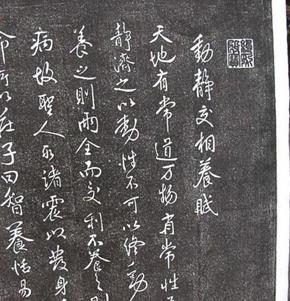 動静交相養賦
天地有常道万物有常性
静濟之以動性不可以終動
養之則兩全而交利不養之則
病故聖人取諸震以發身
命所以莊子曰智養恬易